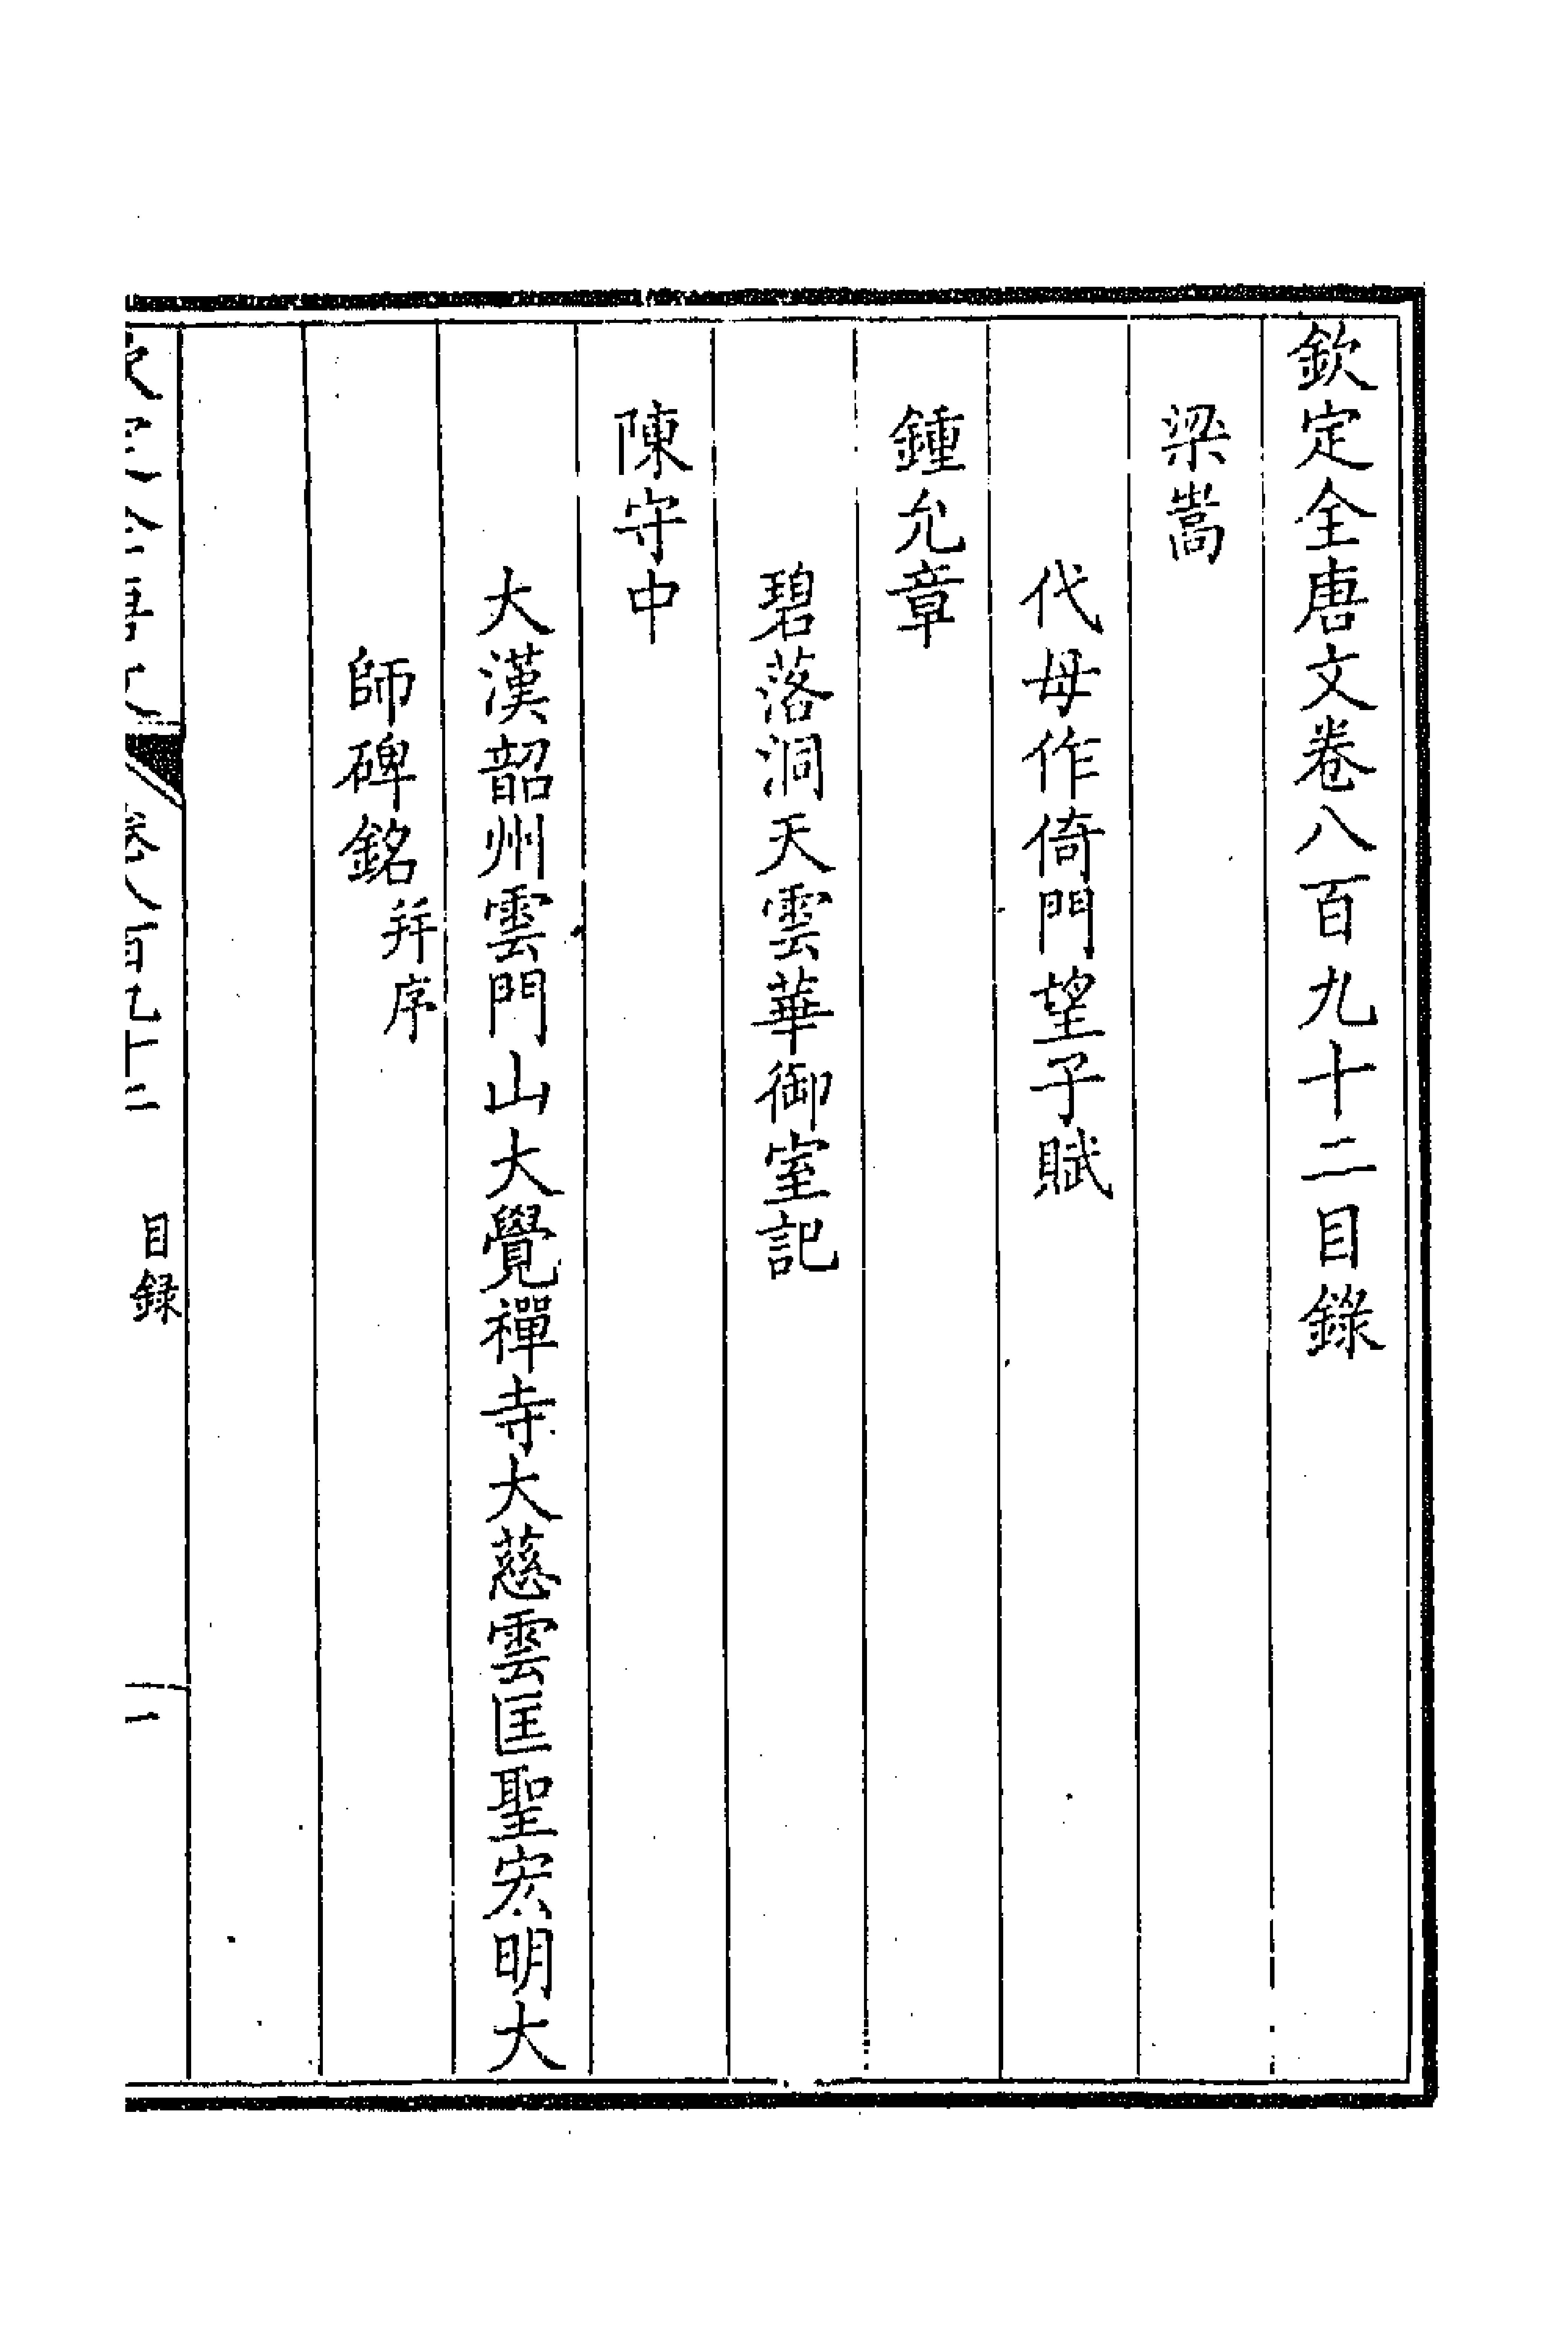 欽定全唐文卷八百九十二目錄
梁嵩
代母作倚門望子賦
鍾允章
碧落洞天雲華御室記
陳守中
大漢韶州雲門山大覺禪寺大慈雲匡聖宏明大
師碑銘并序
卷八百九十二 目録 一